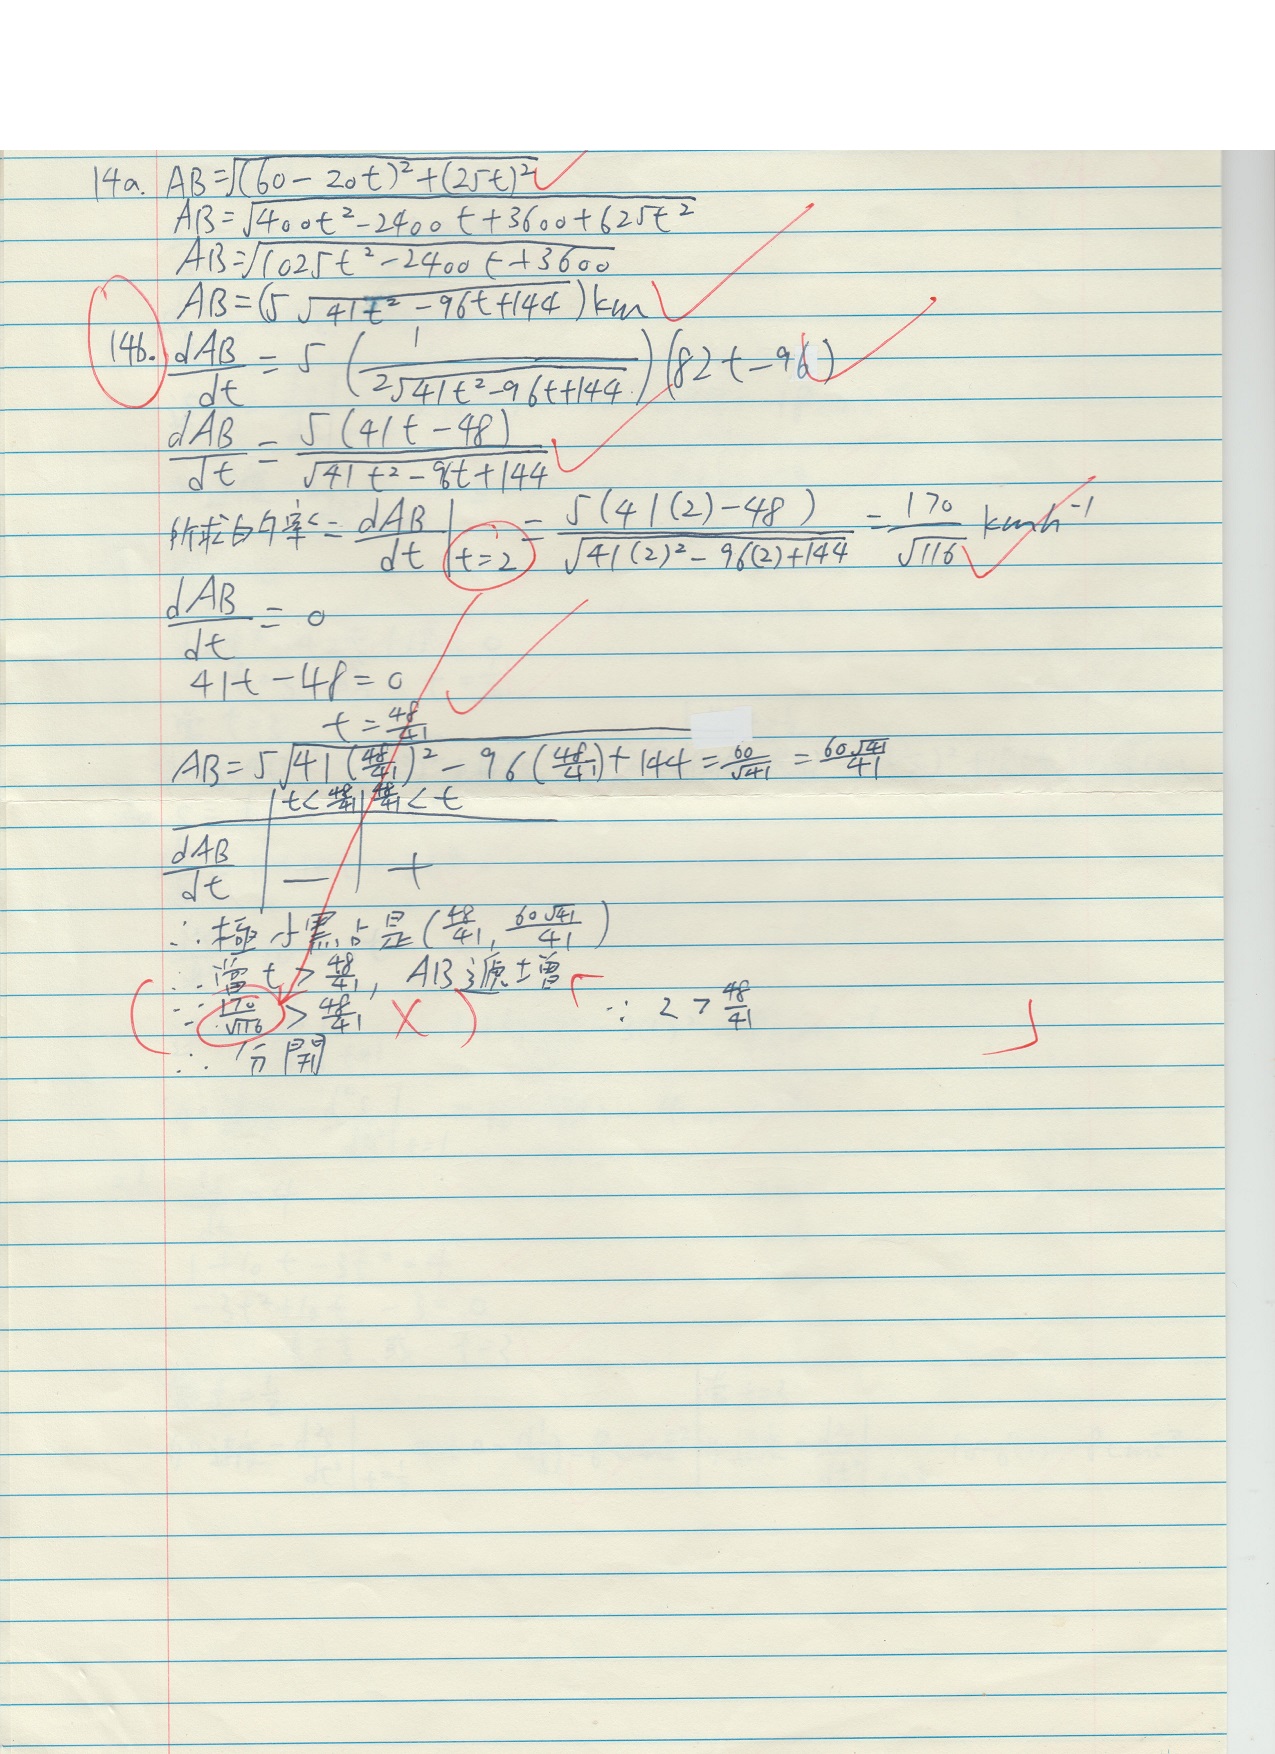 14a. AB=√((60-20t)²+(25t)²)
AB=√(400t²-2400t+3600+625t²)
AB=√(1025t²-2400t+3600)
AB=(5√(41t²-96t+144))km
14b. dAB/dt = 5(1/(2√(41t²-96t+144)))(82t-96)
dAB/dt = 5(41t-48)/√(41t²-96t+144)
所求的率 = dAB/dt|t=2 = 5(41(2)-48)/√(41(2)²-96(2)+144) = 170/√116 kmh⁻¹
dAB/dt = 0
41t-48=0
t=48/41
AB=5√(41(48/41)²-96(48/41)+144)=60/√41=60√41/41
t<48/41 48/41<t
dAB/dt - +
∴極小點是(48/41, 60√41/41)
∴當t>48/41, AB遞增
∵170/√116>48/41 ∵2>48/41
∴分開